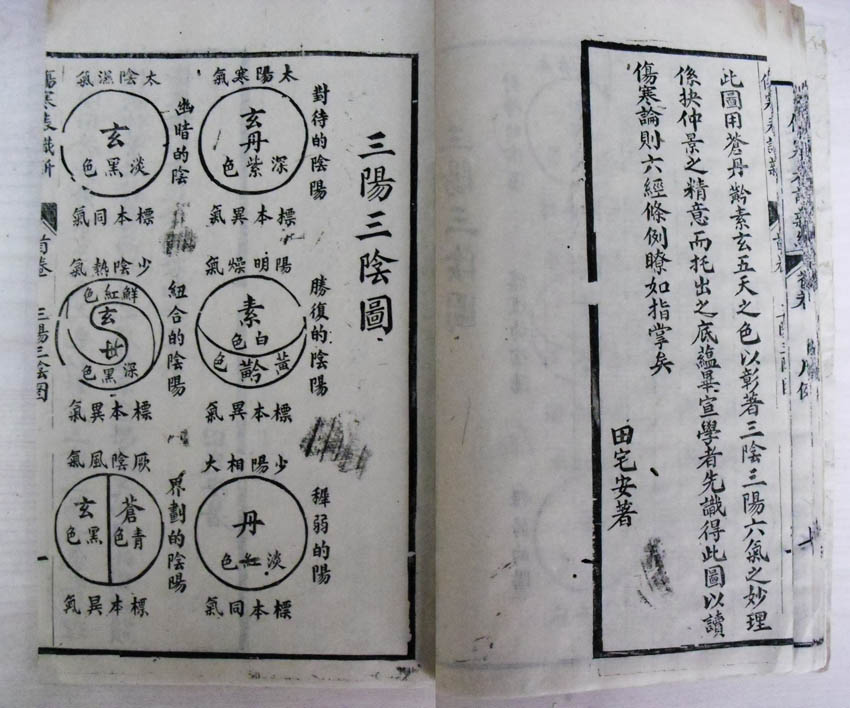 此圖用蒼丹黅素玄五天之色以彰著三陰三陽六氣之妙理
係抉仲景之精意而托出之底蘊畢宣學者先識得此圖以讀
傷寒論則六經條例瞭如指掌矣
田宅安著
三陽三陰圖
對待的陰陽
太陽寒氣
玄
丹
深紫色
標本異氣
勝復的陰陽
陽明燥氣
素
白色
黅
黃色
標本異氣
稺弱的陽
少陽相火
丹
淡紅色
標本同氣
幽暗的陰
太陰濕氣
玄
淡黑色
標本同氣
紐合的陰陽
少陰熱氣
鮮紅色
玄
丹
深黑色
標本異氣
界劃的陰陽
厥陰風氣
蒼
青色
玄
黑色
標本異氣
首卷
三陽三陰圖